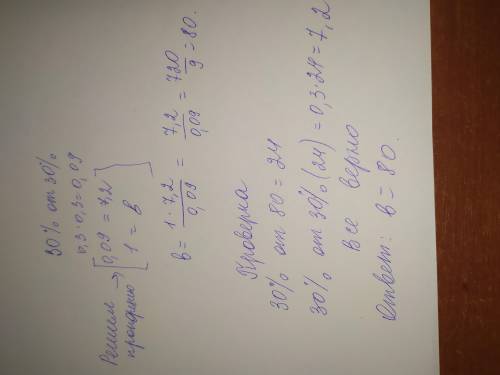 30% от 30%
0,3·0,3=0,09
Решим пропорцию → [0,09 = 7,2
1 = в]
в = 1·7,2/0,09 = 7,2/0,09 = 720/9 = 80.
Проверка
30% от 80 = 24
30% от 30% (24) = 0,3·24 = 7,2
Все верно
Ответ: в = 80.